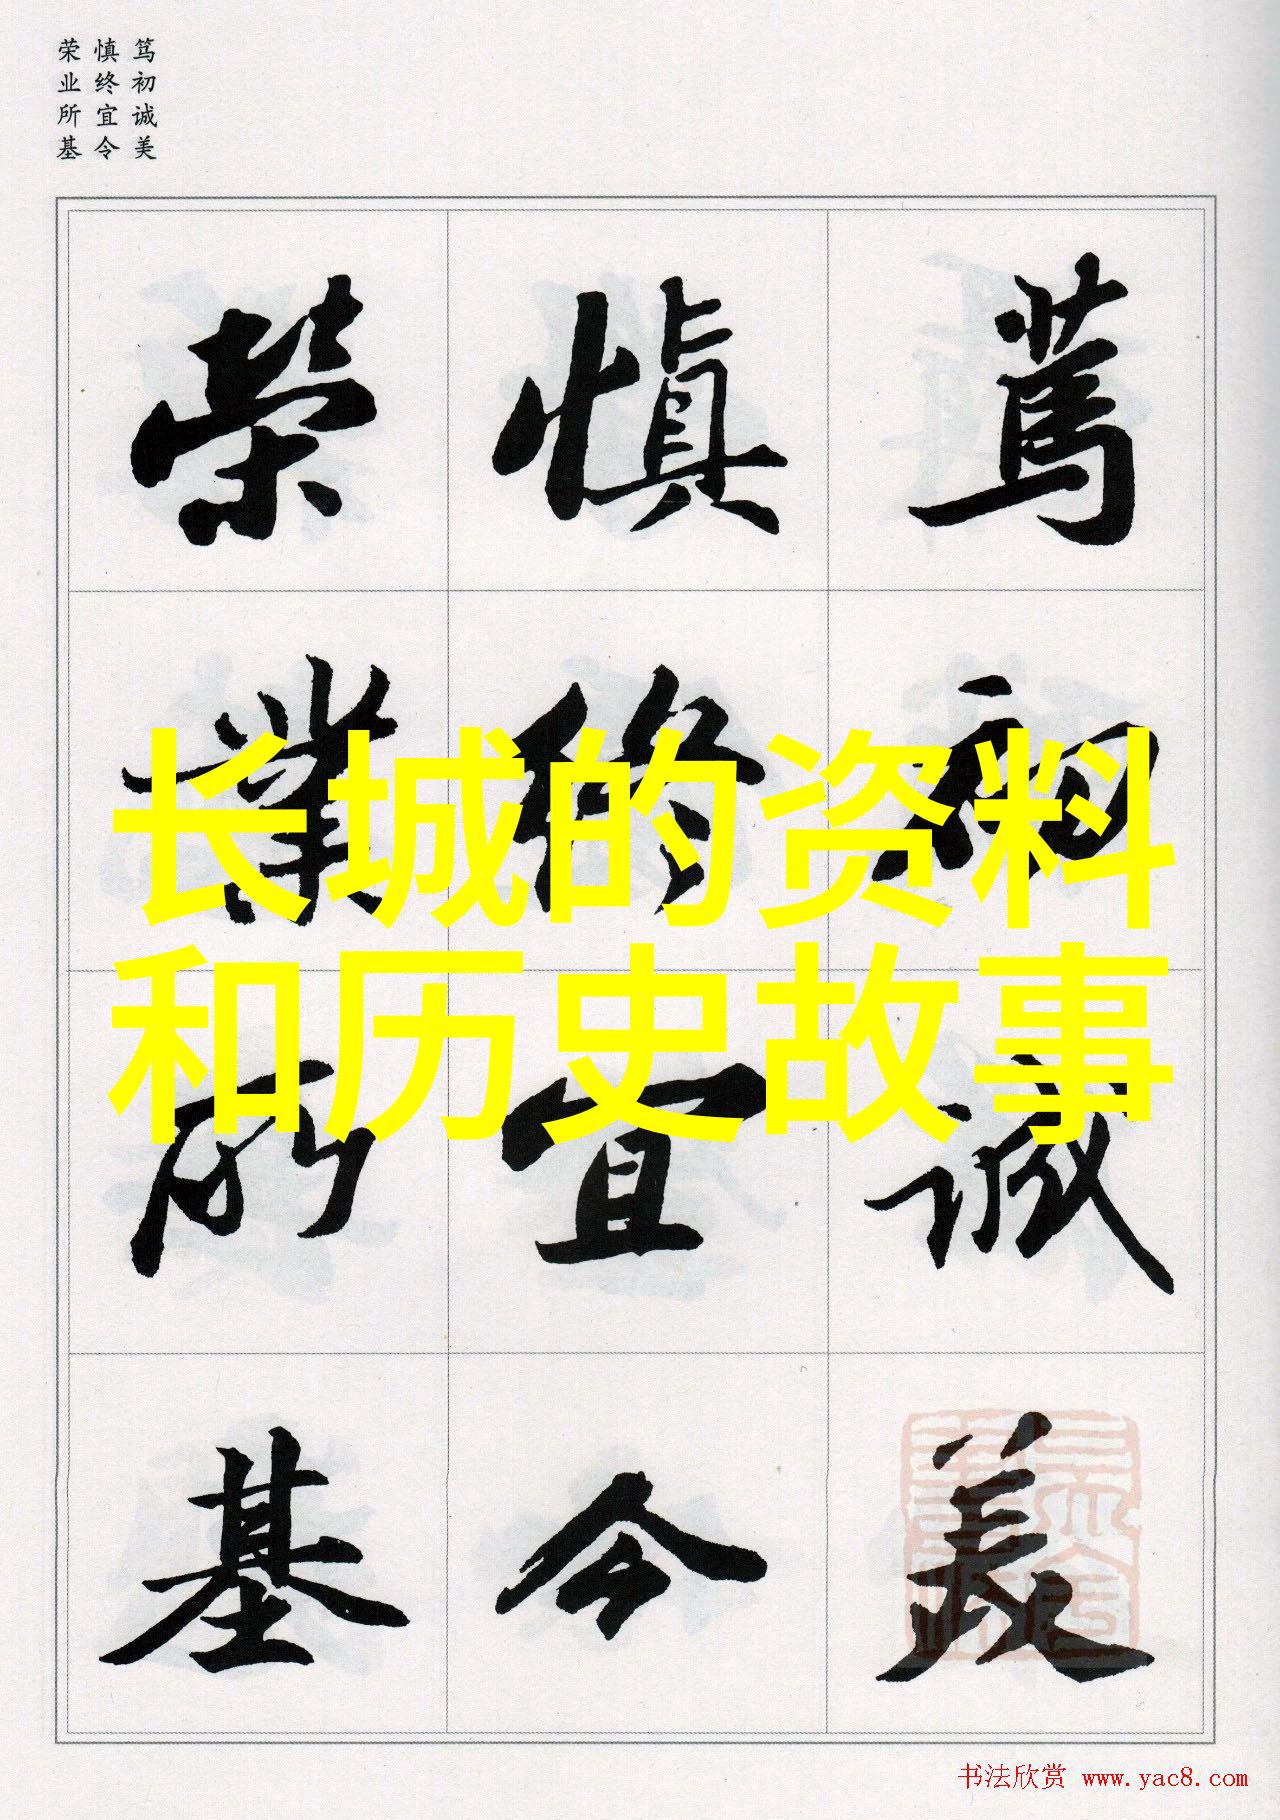 笃初诚美
慎终宜令
荣业所基
篤初诚美
慎终宜令
榮業所基
长城的资料
和历史故事
书法欣赏 www.yac8.com